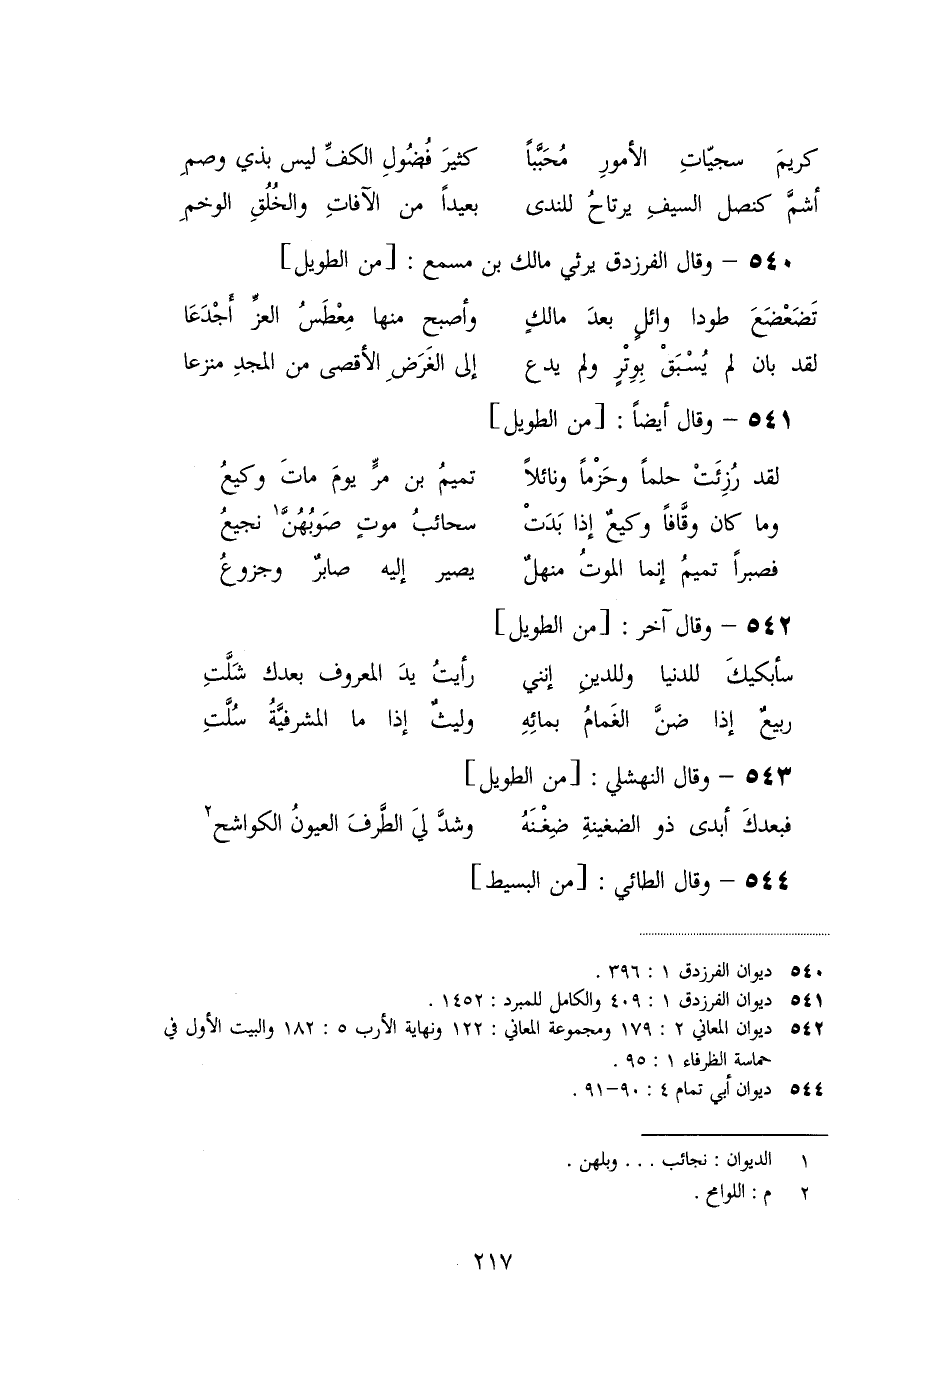 كريمَ سجيّاتِ الأمورِ مُحَبَّباً كثيرَ فُضُولِ الكفِّ ليس بذي وصمِ
أشمَّ كنصل السيفِ يرتاحُ للندى بعيداً من الآفاتِ والخُلُقِ الوخمِ
٥٤٠ – وقال الفرزدق يرثي مالك بن مسمع : [من الطويل]
تَضَعْضَعَ طودا وائلٍ بعدَ مالكٍ وأصبح منها مِعْطَسُ العزِّ أَجْدَعَا
لقد بان لم يُسْبَقْ بِوِتْرٍ ولم يدع إلى الغَرَضِ الأقصى من المجدِ منزعا
٥٤١ – وقال أيضاً : [من الطويل]
لقد رُزِئَتْ حلماً وحَزْماً ونائلاً تميمُ بن مرٍّ يومَ ماتَ وكيعُ
وما كان وقَّافاً وكيعٌ إذا بَدَتْ سحائبُ موتٍ صَوبُهُنَّ١ نجيعُ
فصبراً تميمُ إنما الموتُ منهلٌ يصير إليه صابرٌ وجزوعُ
٥٤٢ – وقال آخر : [من الطويل]
سأبكيكَ للدنيا وللدينِ إنني رأيتُ يدَ المعروف بعدك شَلَّتِ
ربيعٌ إذا ضنَّ الغَمامُ بمائِهِ وليثٌ إذا ما المشرفيَّةُ سُلَّتِ
٥٤٣ – وقال النهشلي : [من الطويل]
فبعدكَ أبدى ذو الضغينةِ ضِغْنَهُ وشدَّ ليَ الطَّرفَ العيونُ الكواشح٢
٥٤٤ – وقال الطائي : [من البسيط]
٥٤٠ ديوان الفرزدق ١ : ٣٩٦ .
٥٤١ ديوان الفرزدق ١ : ٤٠٩ والكامل للمبرد : ١٤٥٢ .
٥٤٢ ديوان المعاني ٢ : ١٧٩ ومجموعة المعاني : ١٢٢ ونهاية الأرب ٥ : ١٨٢ والبيت الأول في
حماسة الظرفاء ١ : ٩٥ .
٥٤٤ ديوان أبي تمام ٤ : ٩٠–٩١ .
١ الديوان : نجائب . . . وبلهن .
٢ م : اللوامح .
٢١٧